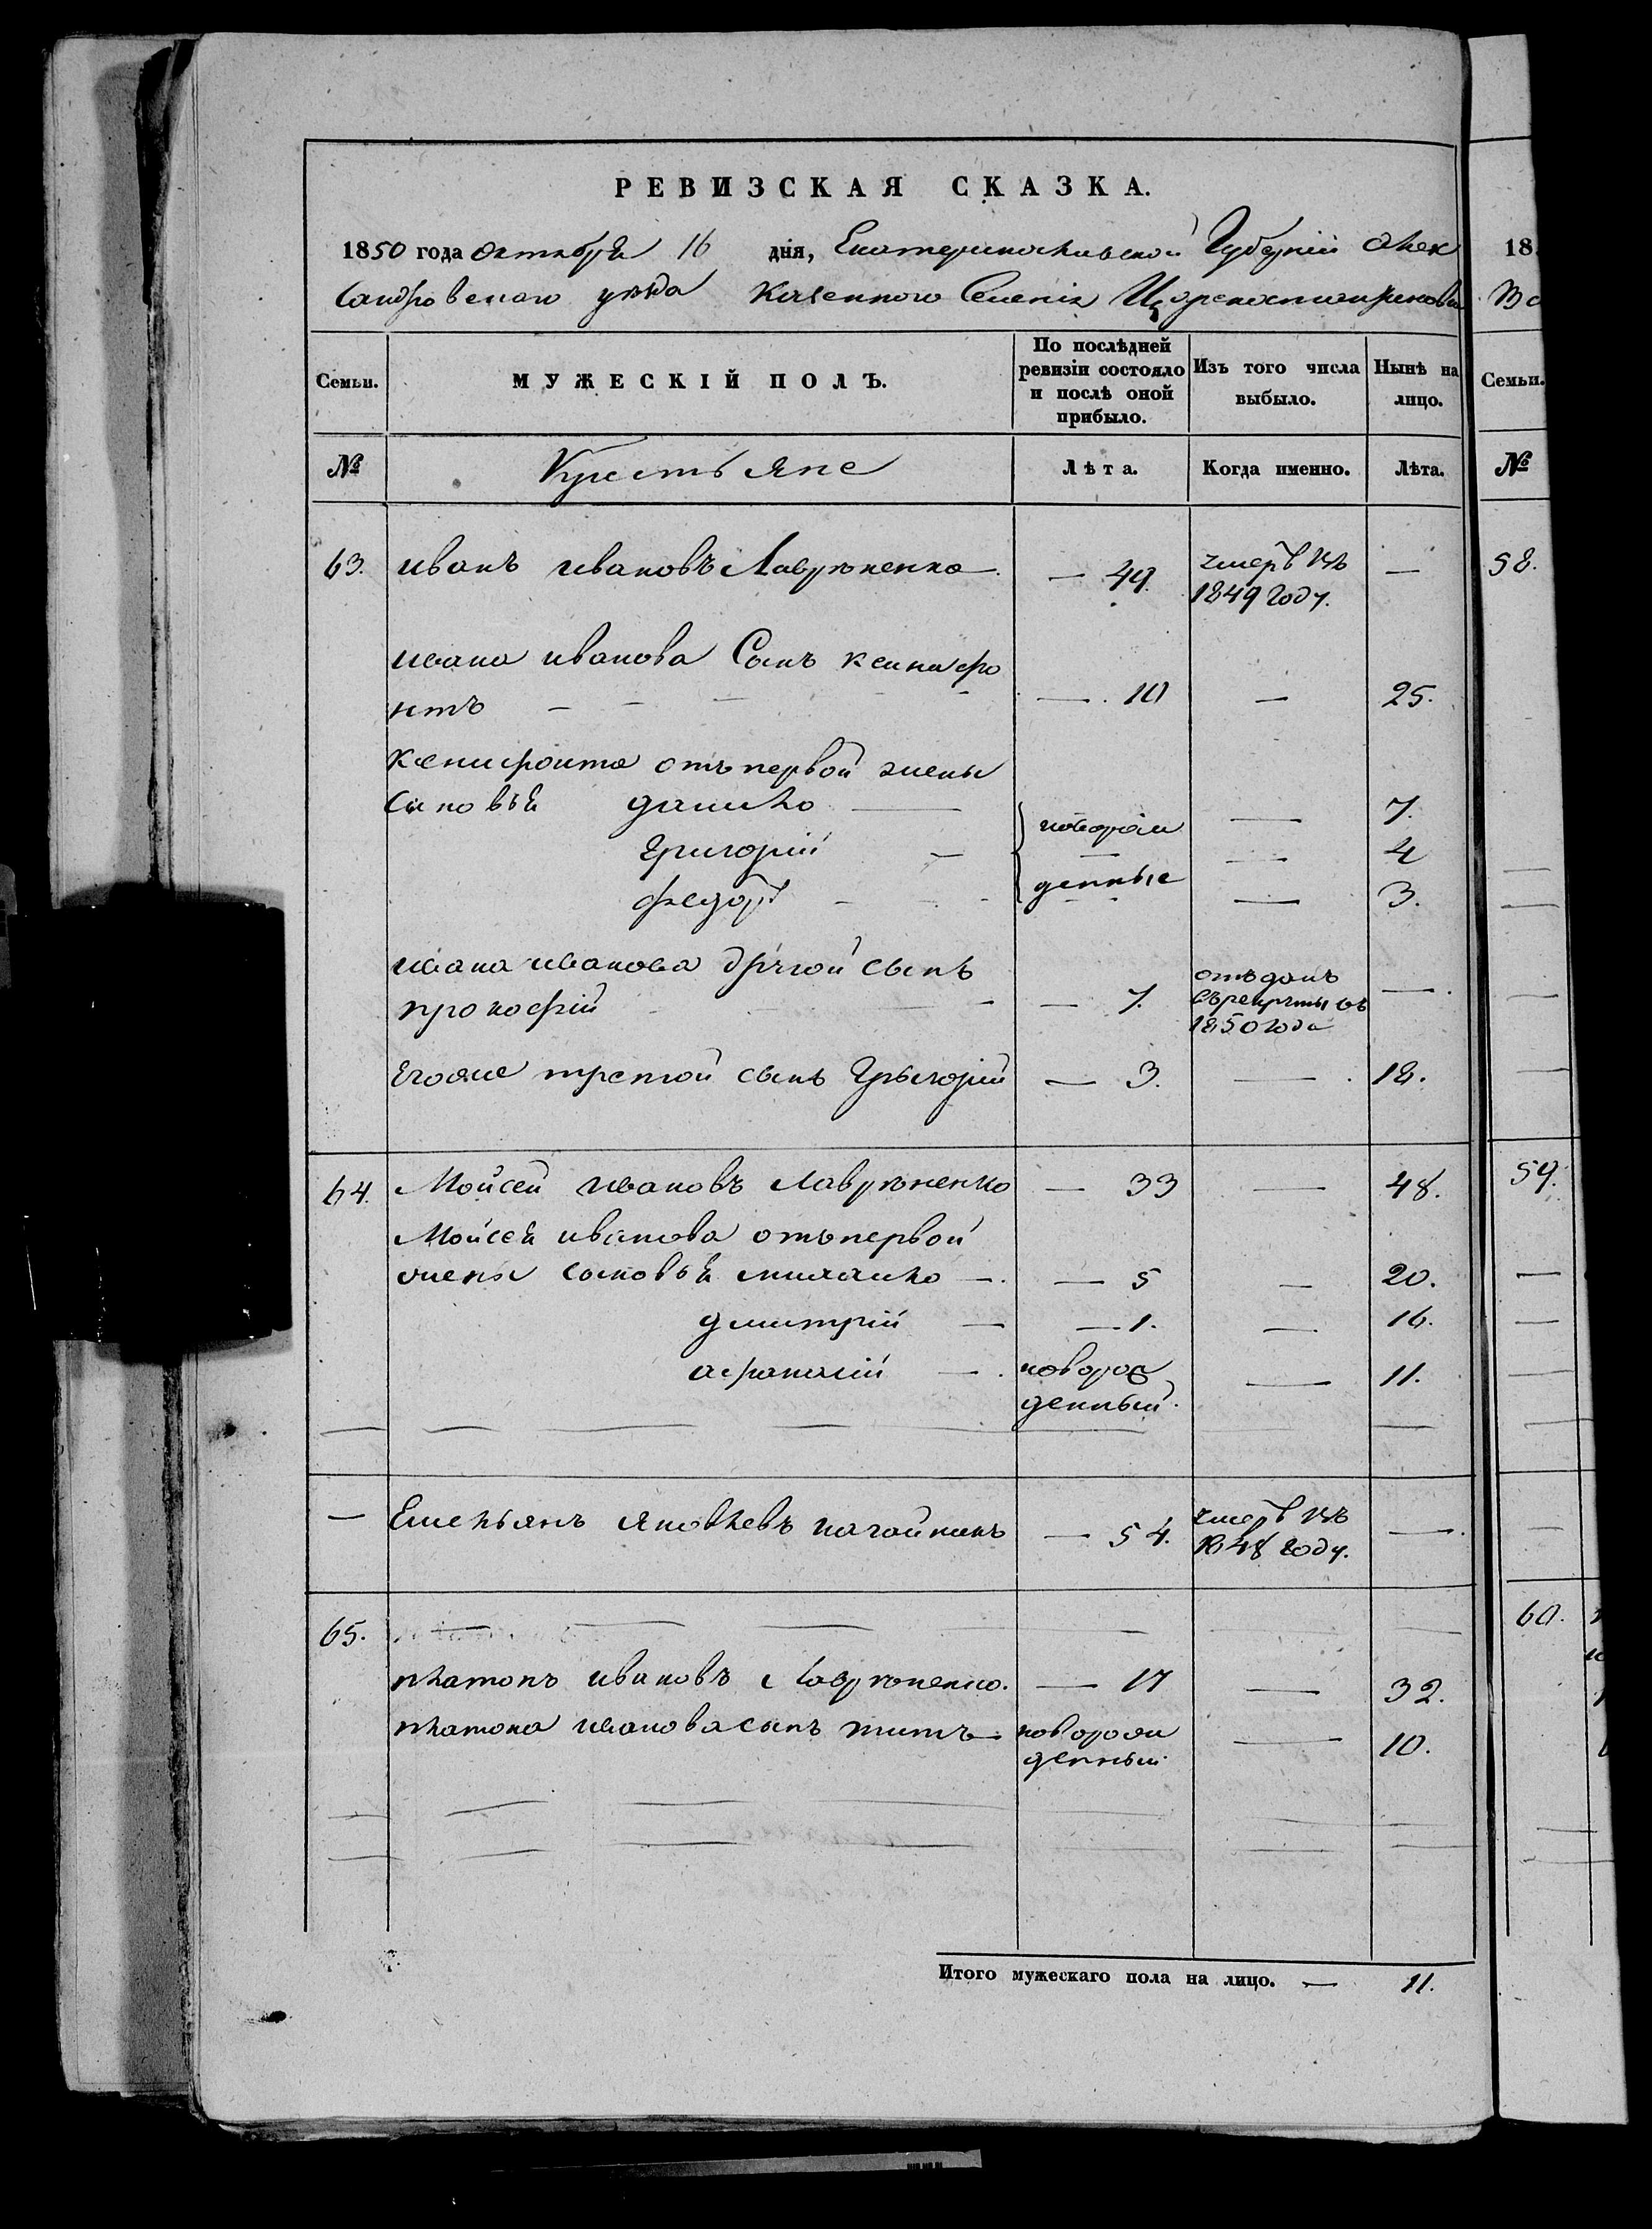 РЕВИЗСКАЯ СКАЗКА.
1850 года октября 16 дня, Екатеринославской Губерніи Алек
сандровскаго уезда казенного Селенія
Семьи. МУЖЕСКІЙ ПОЛЪ. По послѣдней ревизіи состояло и послѣ оной прибыло. Изъ того числа выбыло. Нынѣ на лицо.
№ Крестьяне Лѣта. Когда именно. Лѣта.
63. иванъ ивановъ Лавриненко — 49. умеръ въ 1849 году. —
ивана иванова Сынъ ксенофо
нтъ — 10 — 25.
ксенифонта отъ первой жены
сыновья данило — новорож — 7.
Григорій — — 4
федоръ денные — 3.
ивана иванова другой сынъ
прокофій — 7. отъданъ въ рекруты въ 1850 года —
Егоже третой сынъ Грыгорій — 3. — 18.
64. Мойсей ивановъ лавриненко — 33 — 48.
Мойсея иванова отъ первой
жены сыновья михайло — — 5 — 20.
дмитрій — — 1. — 16.
афанасій — новорож денный. — 11.
— Емельянъ яковлевъ — 54. умеръ въ 1848 году. —
65. —
платонъ ивановъ Лавриненко. — 17 — 32.
платона иванова сынъ титъ новорож денный — 10.
Итого мужескаго пола на лицо. — 11.
18
Во
Семьи.
№
58.
59.
60.